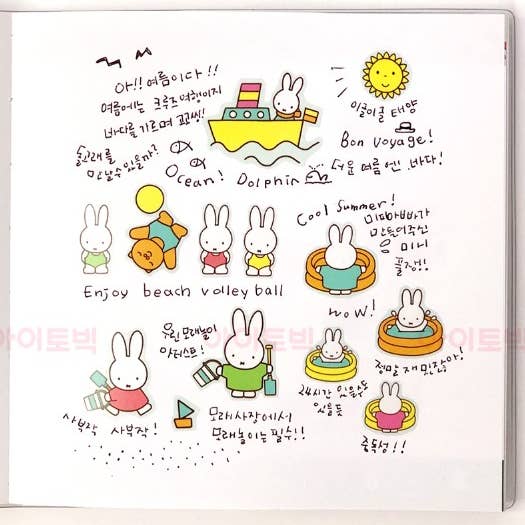 아!! 여름이다!!
여름에는 크루즈여행이지
바다를 가르며 꼬씽!
돌고래를
만날수있을까?
Ocean! Dolphin
이글이글 태양
Bon voyage!
더운 여름엔 바다!
Enjoy beach volley ball
Cool Summer!
미피아빠가
만들어주신
미니
풀장!!
wow!
우린 모래놀이
아티스트!
사부작 사부작!
모래사장에서
모래놀이는 필수!!
24시간 있을수도
있을듯
정말 재밌잖아!
중독성!!
아이토빅
아이토빅